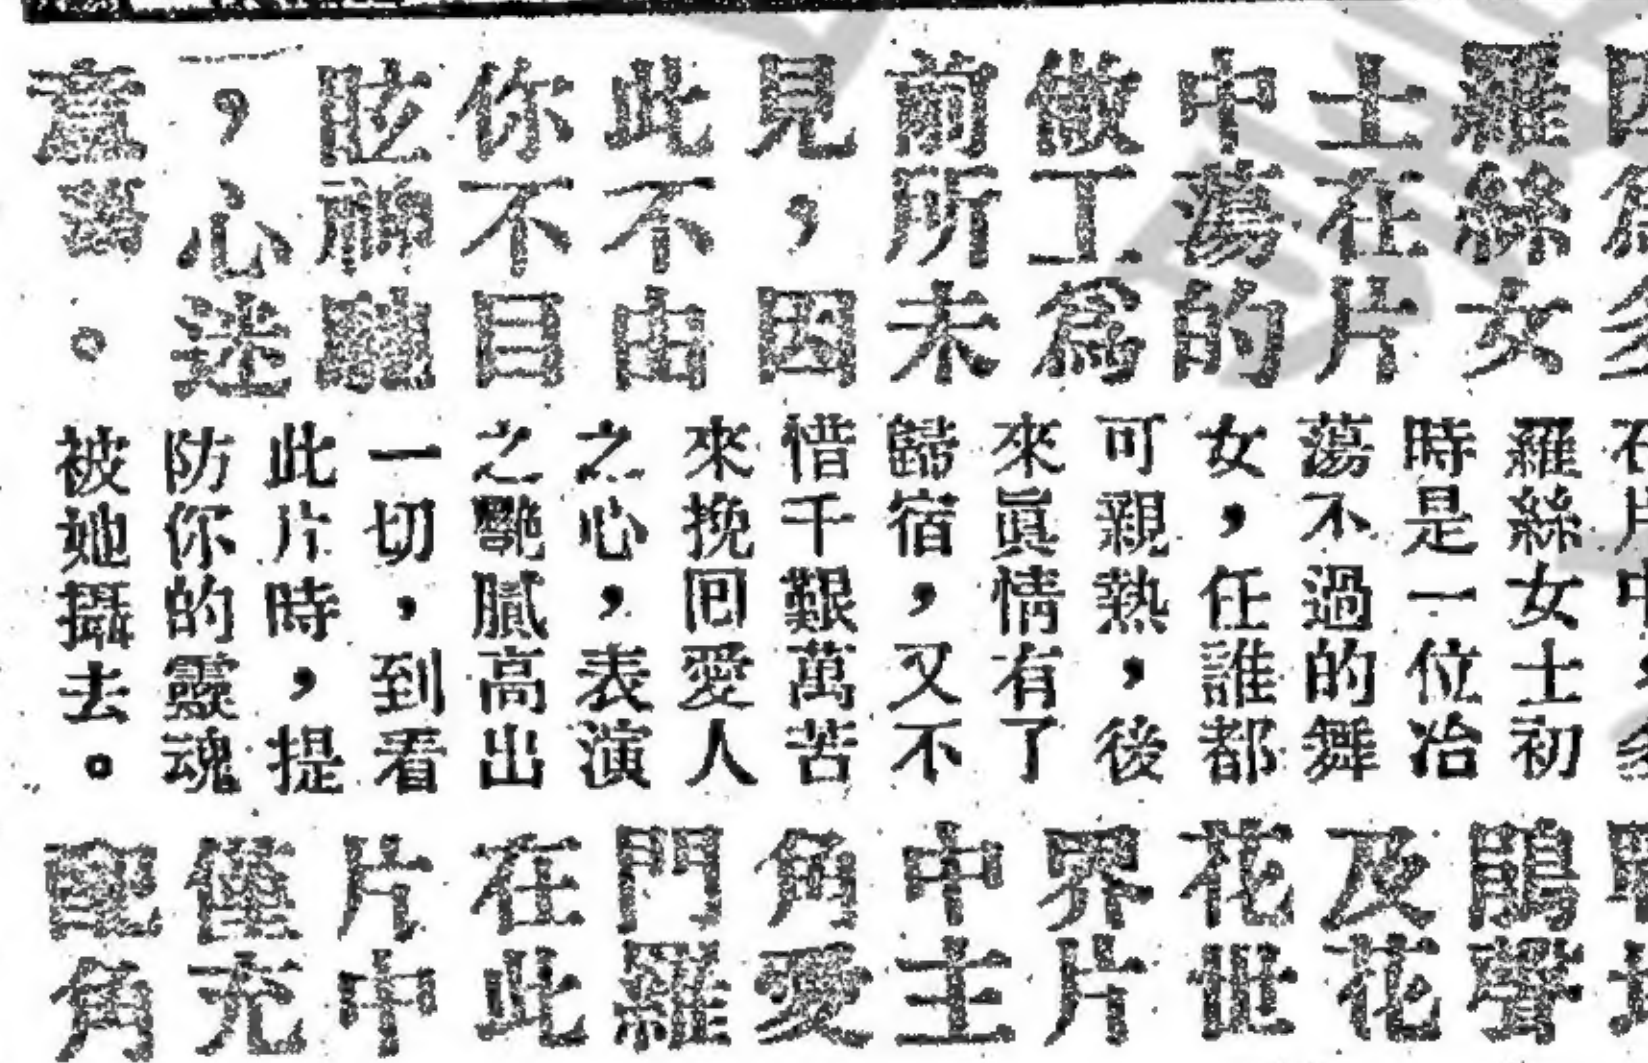 羅絲女
士在片
中蕩的
做工爲
前所未
見，因
此不由
你不目
眩神馳
，心迷
意。
羅絲女士初
時是一位冶
蕩不過的舞
女，任誰都
可親熱，後
來眞情有了
歸宿，又不
惜千艱萬苦
來挽囘愛人
之心，表演
之艷膩高出
一切，到看
此片時，提
防你的靈魂
被她攝去。
鵑聲
及花
花世
界片
中主
角愛
門羅
在此
片中
僅充
配角